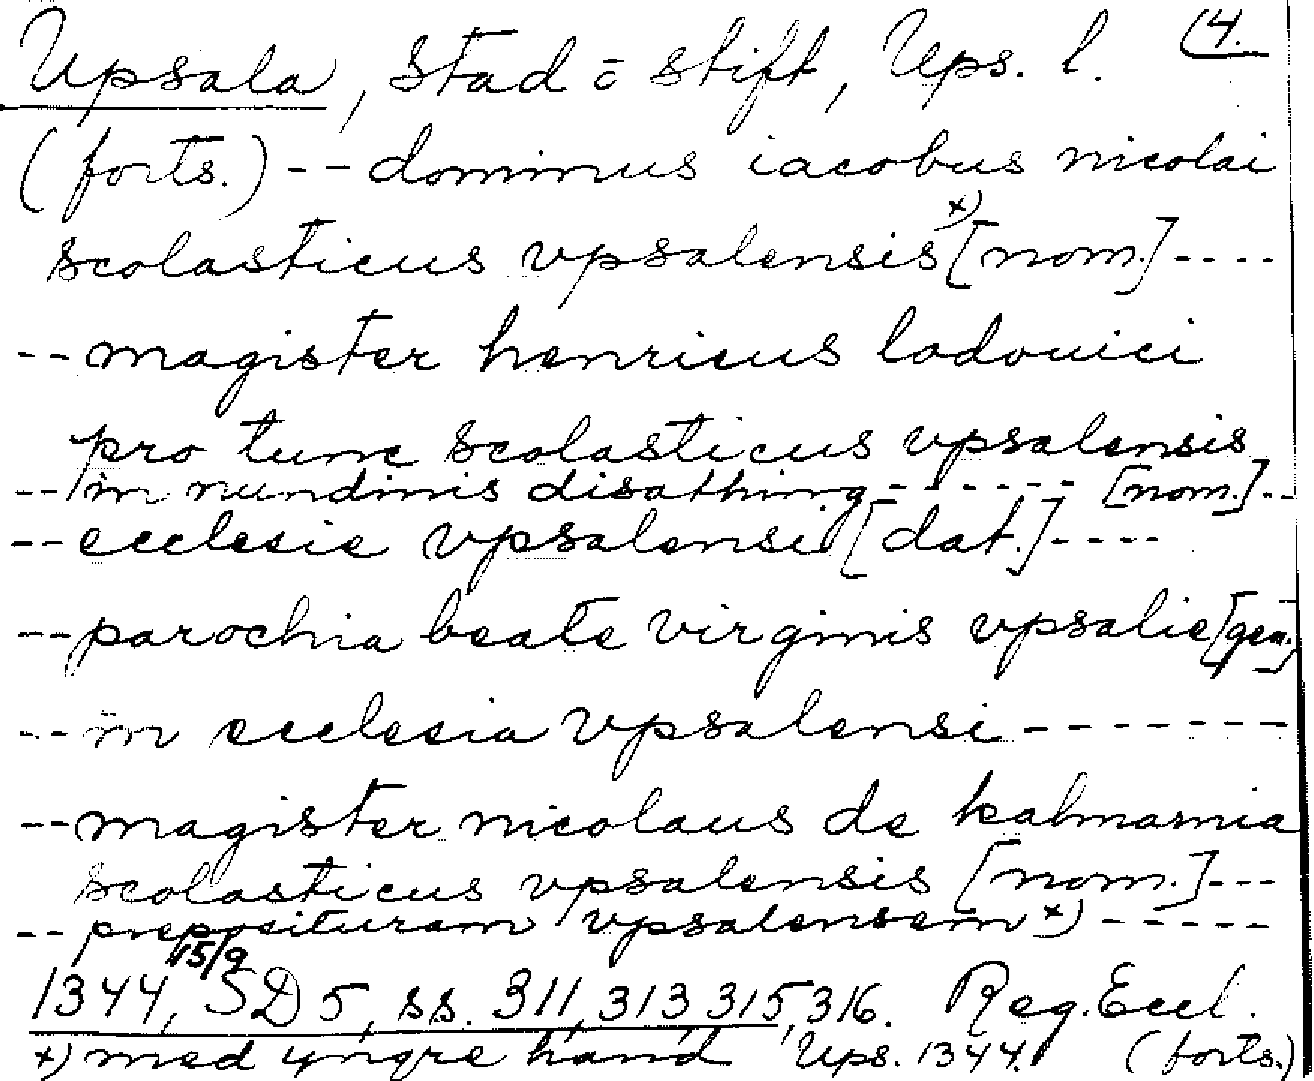 Upsala, stad o stift, Ups. l. (4.
(forts.) -- dominus iacobus nicolai
scolasticus vpsalensis x) [nom.] ----
-- magister henricus lodouici
pro tunc scolasticus vpsalensis
-- in nundinis disathing ------ [nom.] --
-- ecclesie vpsalensi [dat.] ----
-- parochia beate virginis vpsalie [gen.]
-- in ecclesia vpsalensi -------
-- magister nicolaus de kalmarnia
scolasticus vpsalensis [nom.] ---
-- preposituram vpsalensem x) -----
1344, 15/9 SD 5, ss. 311, 313, 315, 316. Reg. Eccl.
x) med yngre hand Ups. 1344. (forts.)